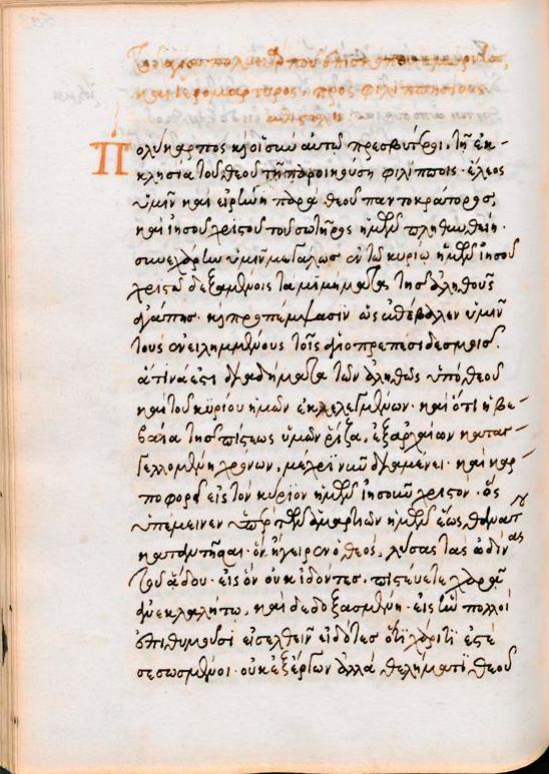 Τοῦ ἁγίου πολυκάρπου ἐπισκόπου σμύρνης,
καὶ ἱερομάρτυρος, πρὸς φιλιππησίους
ἐπιστολή
Πολύκαρπος κ̀ οἱ σὺν αὐτῷ πρεσβύτεροι. τῇ ἐκ-
κλησία τοῦ θεοῦ τῇ παροικούση φιλίπποις· ἔλεος
ὑμῖν καὶ εἰρήνη παρὰ θεοῦ παντοκράτορος,
καὶ ἰησοῦ χριστοῦ τοῦ σωτῆρος ἡμῶν πληθυνθείη·
συνεχάρην ὑμῖν μεγάλως ἐν τῷ κυρίω ἡμῶν ἰησοῦ
χριστῷ δεξαμένοις τὰ μιμήματα τῆς ἀληθοῦς
ἀγάπης· κ̀ προπέμψασιν ὡς ἐπέβαλεν ὑμῖν
τοὺς ἐνειλημμένους τοῖς ἁγιοπρεπέσι δεσμοῖς.
ἅτινά ἐστι διαδήματα τῶν ἀληθῶς ὑπὸ θεοῦ
καὶ τοῦ κυρίου ἡμῶν ἐκλελεγμένων· καὶ ὅτι ἡ βε-
βαία τῆς πίστεως ὑμῶν ῥίζα, ἐξ ἀρχαίων καταγ-
γελλομένη χρόνων, μέχρι νῦν διαμένει· καὶ καρ-
ποφορεῖ εἰς τὸν κύριον ἡμῶν ἰησοῦν χριστόν· ὃς
ὑπέμεινεν ὑπὲρ τῶν ἁμαρτιῶν ἡμῶν ἕως θανάτου
καταντῆσαι· ὃν ἤγειρεν ὁ θεός, λύσας τὰς ὠδῖνας
τοῦ ᾅδου· εἰς ὃν οὐκ ἰδόντες πιστεύετε χαρᾷ
ἀνεκλαλήτω, καὶ δεδοξασμένη· εἰς ἣν πολλοὶ
ἐπιθυμοῦσι εἰσελθεῖν εἰδότες ὅτι χάριτί ἐστε
σεσωσμένοι· οὐκ ἐξ ἔργων ἀλλὰ θελήματι θεοῦ